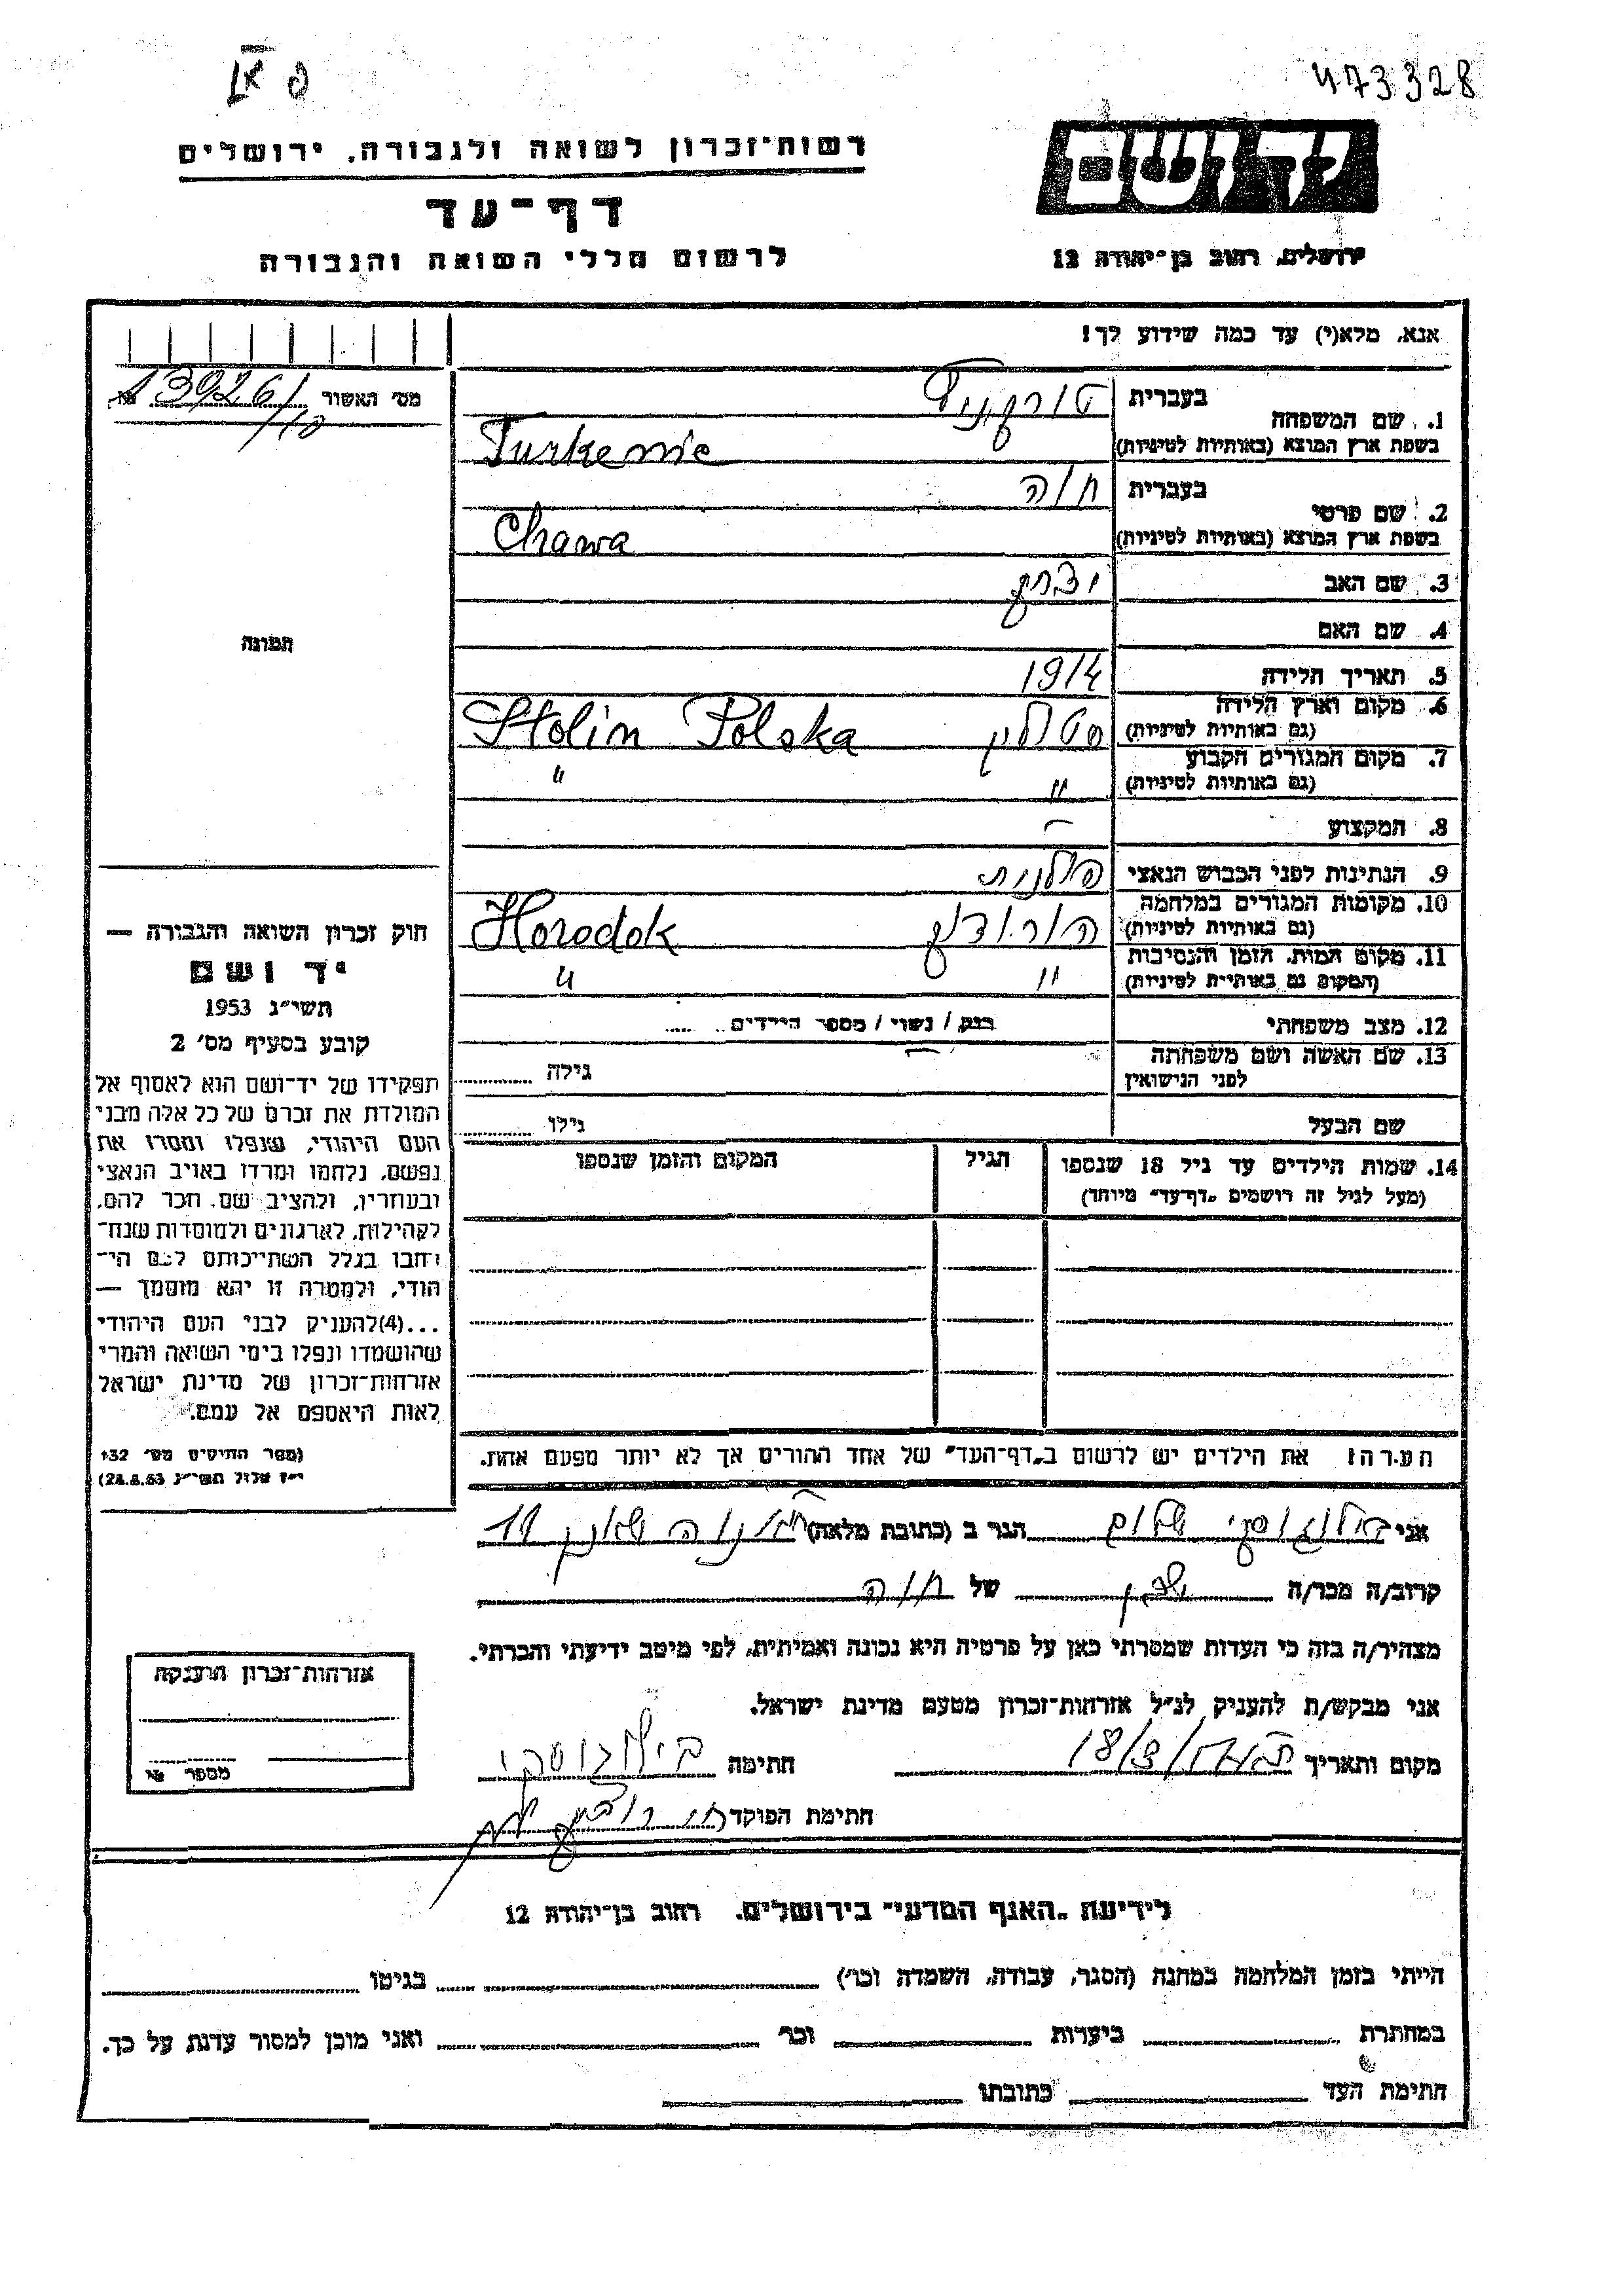 473328
רשות־זכרון לשואה ולגבורה, ירושלים
יד ושם
דף־עד
ירושלים, רחוב בן־יהודה 12
לרשום חללי השואה והגבורה
אנא, מלא(י) עד כמה שידוע לך!
מס׳ האשור 13926/
1. שם המשפחה
בעברית
בשפת ארץ המוצא (באותיות לטיניות) Turkenic
2. שם פרטי
בעברית חוה
בשפת ארץ המוצא (באותיות לטיניות) Chawa
3. שם האב יצחק
4. שם האם
תמונה
5. תאריך הלידה 1914
6. מקום וארץ הלידה
(גם באותיות לטיניות) סטולין Stolin Polska
7. מקום המגורים הקבוע
(גם באותיות לטיניות) " "
8. המקצוע –
9. הנתינות לפני הכבוש הנאצי פולנית
10. מקומות המגורים במלחמה
(גם באותיות לטיניות) הורודוק Horodok
11. מקום המות, הזמן והנסיבות
(המקום גם באותיות לטיניות) " "
12. מצב משפחתי רווק / נשוי / מספר הילדים
13. שם האשה ושם משפחתה
לפני הנישואין
גילה
שם הבעל גילו
14. שמות הילדים עד גיל 18 שנספו
(מעל לגיל זה רושמים "דף־עד" מיוחד)
הגיל
המקום והזמן שנספו
חוק זכרון השואה והגבורה —
יד ושם
תשי״ג 1953
קובע בסעיף מס׳ 2
תפקידו של יד־ושם הוא לאסוף אל
המולדת את זכרם של כל אלה מבני
העם היהודי, שנפלו ומסרו את
נפשם, נלחמו ומרדו באויב הנאצי
ובעוזריו, ולהציב שם וזכר להם,
לקהילות, לארגונים ולמוסדות שנח־
רבו בגלל השתייכותם לעם הי־
הודי, ולמטרה זו יהא מוסמך —
...(4)להעניק לבני העם היהודי
שהושמדו ונפלו בימי השואה והמרי
אזרחות־זכרון של מדינת ישראל
לאות היאספם אל עמם.
(ספר החוקים מס׳ 132
י״ז אלול תשי״ג 28.8.53)
הערה: את הילדים יש לרשום ב"דף־העד" של אחד ההורים אך לא יותר מפעם אחת.
אני שלום הגר ב (כתובת מלאה) 19
קרוב/ה מכר/ה שכן של חוה
מצהיר/ה בזה כי העדות שמסרתי כאן על פרטיה היא נכונה ואמיתית, לפי מיטב ידיעתי והכרתי.
אני מבקש/ת להעניק לנ״ל אזרחות־זכרון מטעם מדינת ישראל.
מקום ותאריך 18/8/ חתימה
חתימת הפוקד
אזרחות־זכרון הוענקה
מספר №
לידיעת "האגף המדעי" בירושלים, רחוב בן־יהודה 12
הייתי בזמן המלחמה במחנה (הסגר, עבודה, השמדה וכו׳) בגיטו
במחתרת ביערות וכו׳ ואני מוכן למסור עדות על כך.
חתימת העד כתובתו